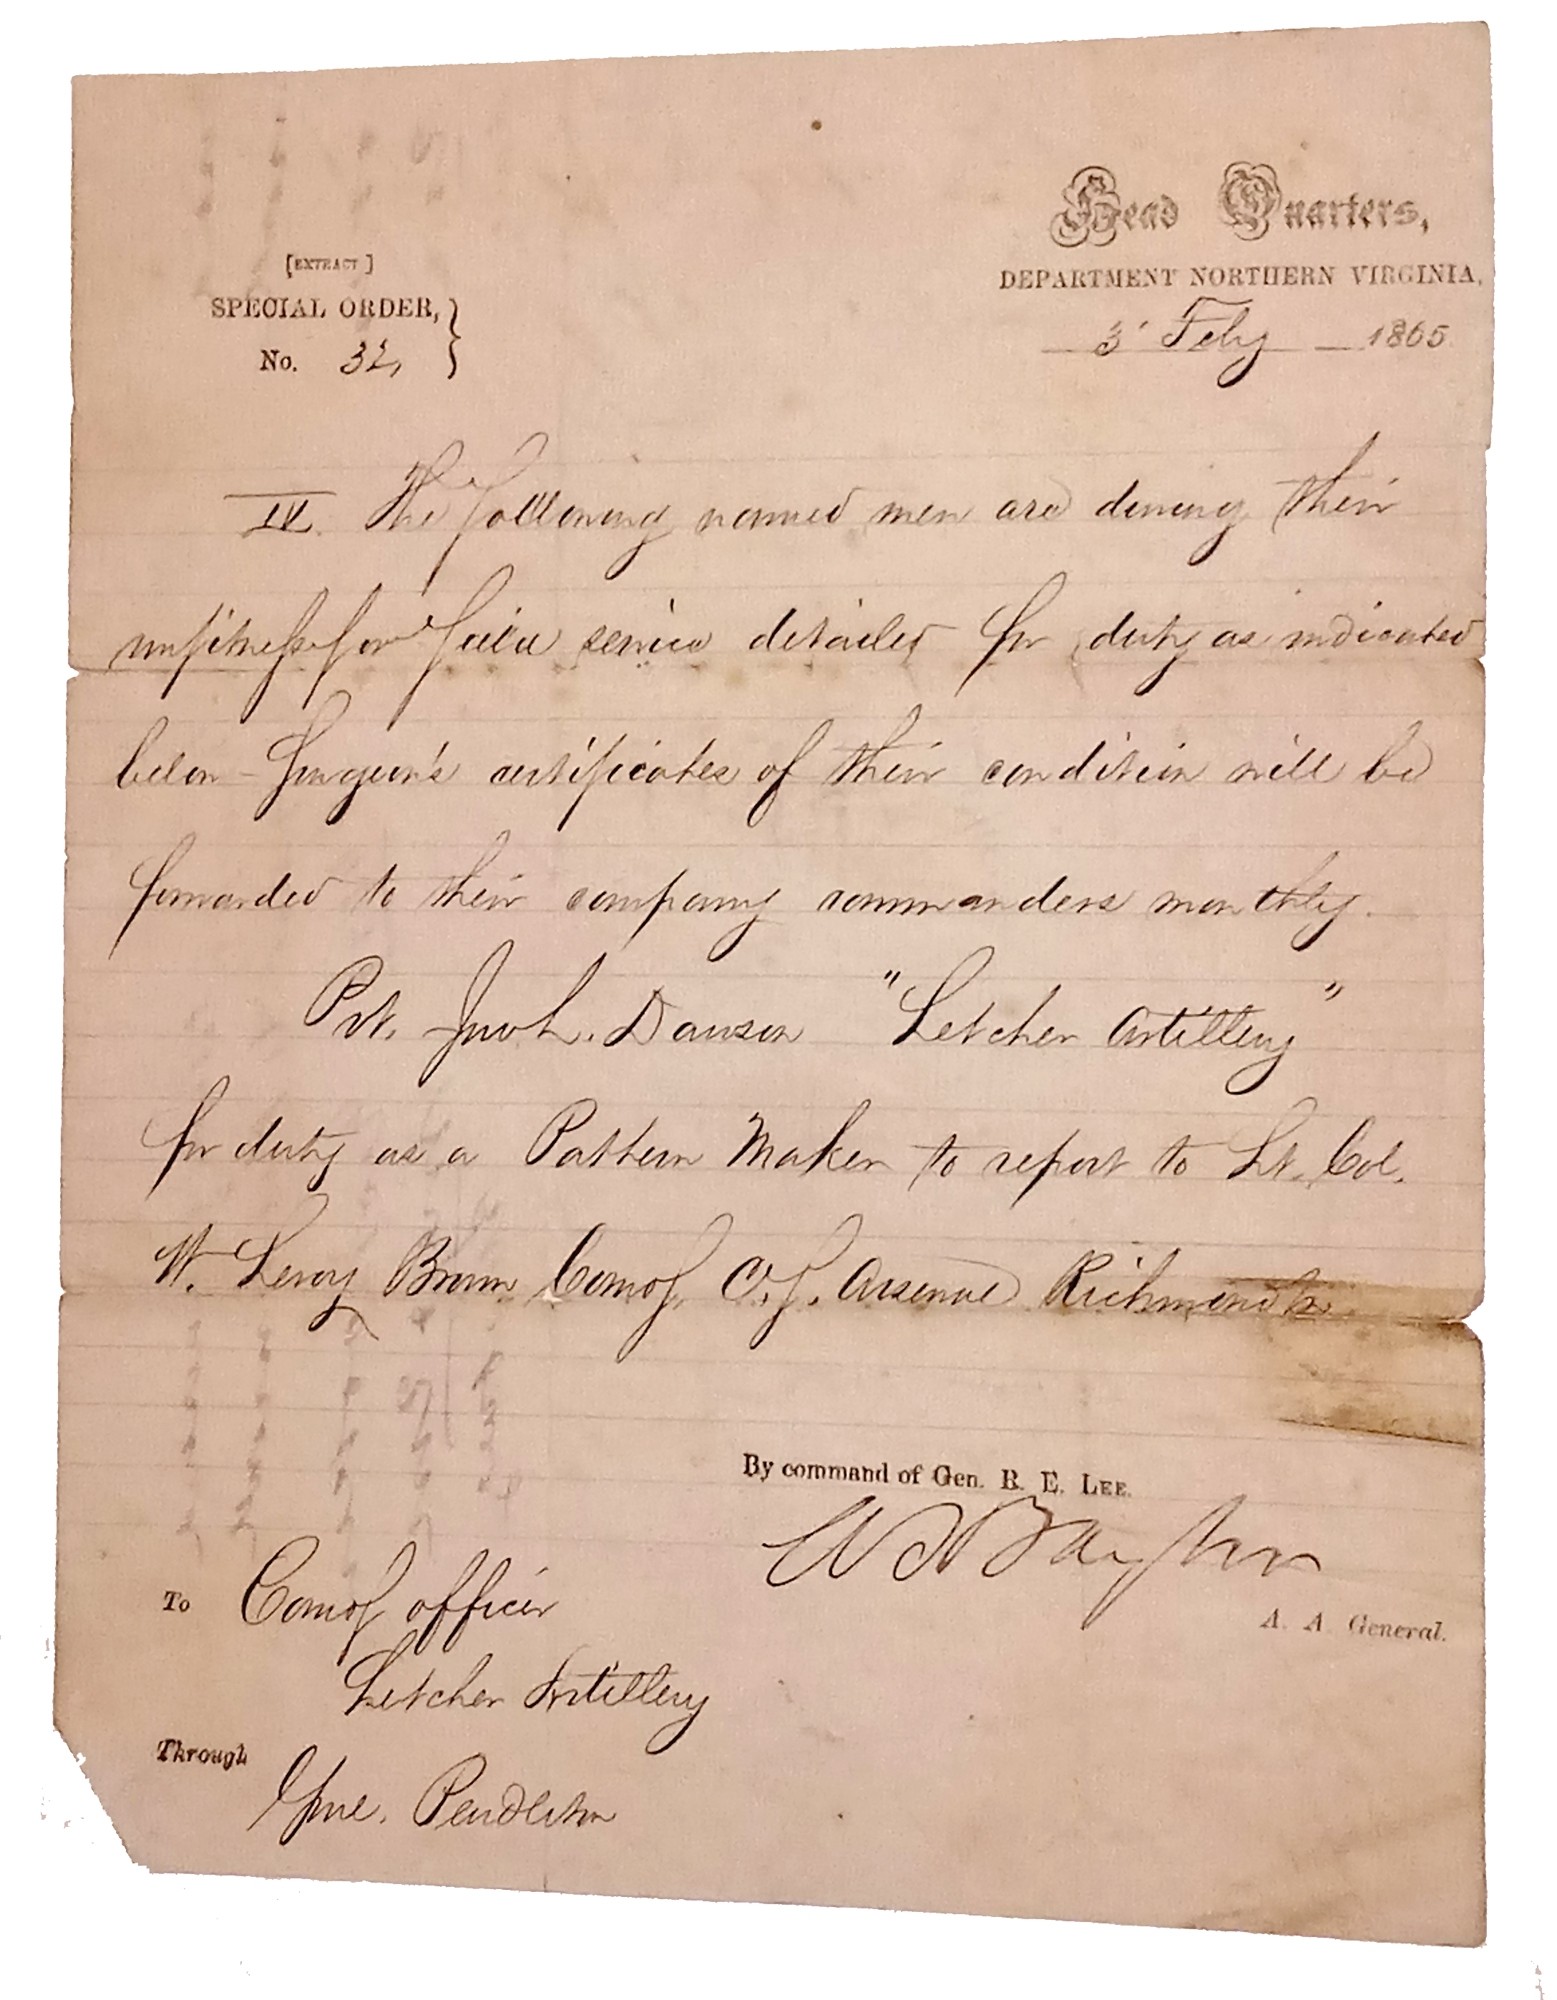 Head Quarters,
DEPARTMENT NORTHERN VIRGINIA,
3' Feby 1865
[EXTRACT]
SPECIAL ORDER,
No. 32,
IV. The following named men are during their
unfitness for field service detailed for duty as indicated
below - Surgeon's certificates of their condition will be
forwarded to their company commanders monthly.
Pvt. Jno L. Dawson "Letcher Artillery"
for duty as a Pattern Maker to report to Lt. Col.
W. Leroy Brown Comdg C.S. Arsenal Richmond Va.
By command of Gen. R. E. LEE.
W H Taylor
A. A. General.
To Comdg officer
Letcher Artillery
Through
Genl. Pendleton